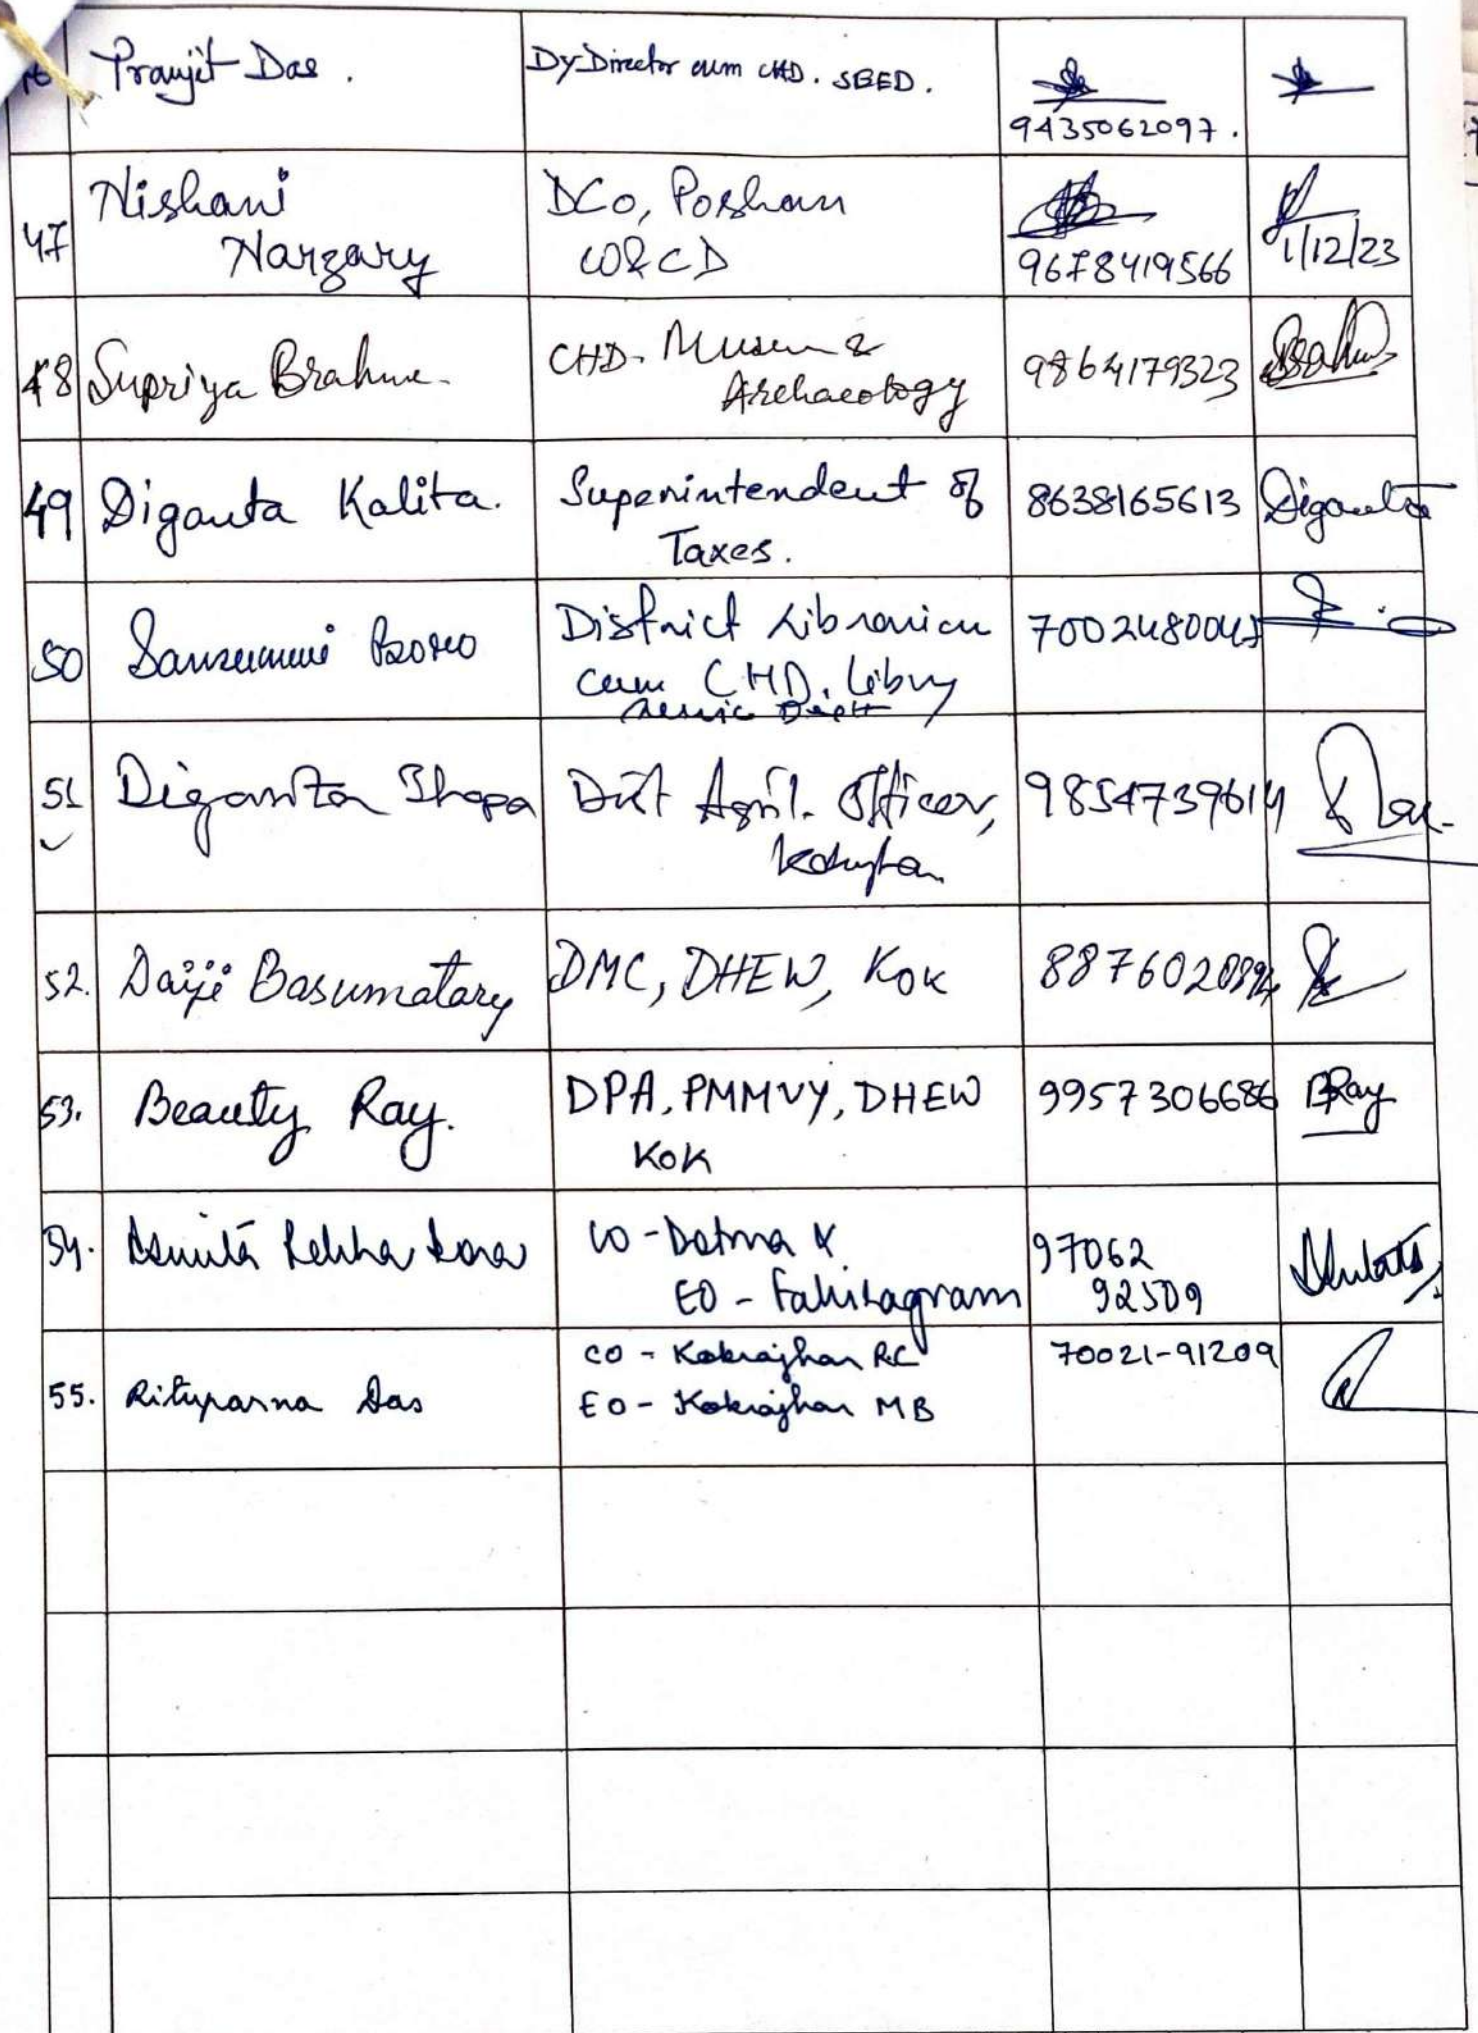 Pranjit Das.
Dy Director cum CHD. SEED.
9435062097.
47
Nishani
Narzary
DCo, Poshan
W&CD
9678419566
1/12/23
48
Supriya Brahma.
CHD- Museum &
Archaeology
9864179323
Brahma
49
Diganta Kalita.
Superintendent of
Taxes.
8638165613
Diganta
50
Boro
District Librarian
cum CHD, Libry
Dept
51
Diganta Thapa
Dist Agril. Officer,
9854739614
52.
Daiji Basumatary
DMC, DHEW, Kok
53.
Beauty Ray.
DPA, PMMVY, DHEW
KOK
9957306686
BRay
54.
CO - Dotma &
EO - Fakiragram
97062
92509
55.
Rituparna Das
CO - Kokrajhar RC
EO - Kokrajhar MB
70021-91209